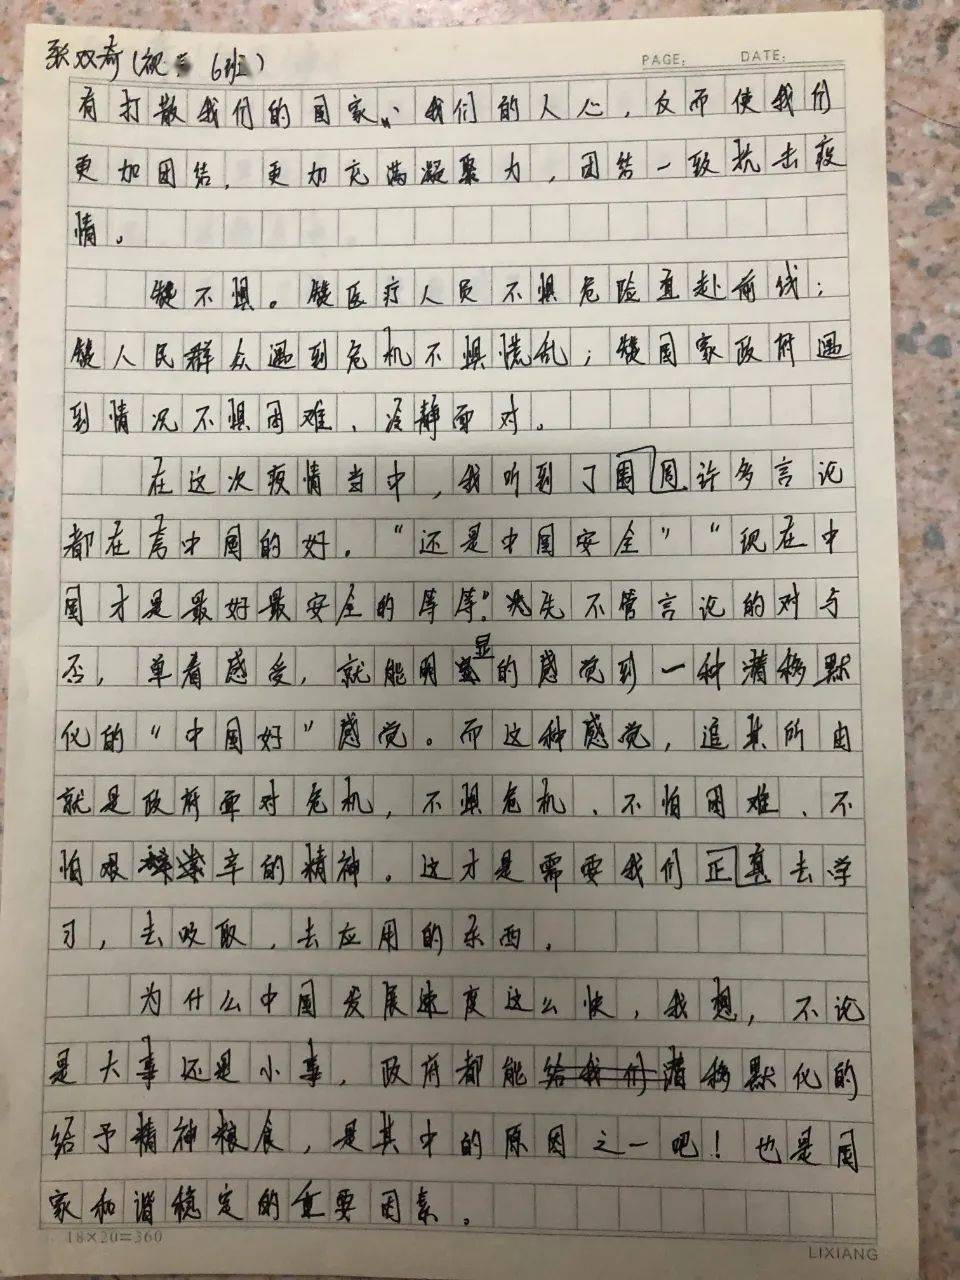 张双奇(视 6班)
PAGE: DATE:
有打散我们的国家、我们的人心，反而使我们
更加团结，更加充满凝聚力，团结一致抗击疫
情。
疑不惧。疑医疗人员不惧危险直赴前线；
疑人民群众遇到危机不惧慌乱；疑国家政府遇
到情况不惧困难、冷静面对。
在这次疫情当中，我听到了围周许多言论
都在言中国的好。“还是中国安全”“现在中
国才是最好最安全的等等”。先不管言论的对与
否，单看感受，就能明显的感觉到一种潜移默
化的“中国好”感觉。而这种感觉，追其所由
就是政府面对危机，不惧危机、不怕困难、不
怕艰辛的精神。这才是需要我们正真去学
习，去吸取，去应用的东西。
为什么中国发展速度这么快，我想，不论
是大事还是小事，政府都能潜移默化的
给予精神粮食，是其中的原因之一吧！也是国
家和谐稳定的重要因素。
18×20=360
LIXIANG